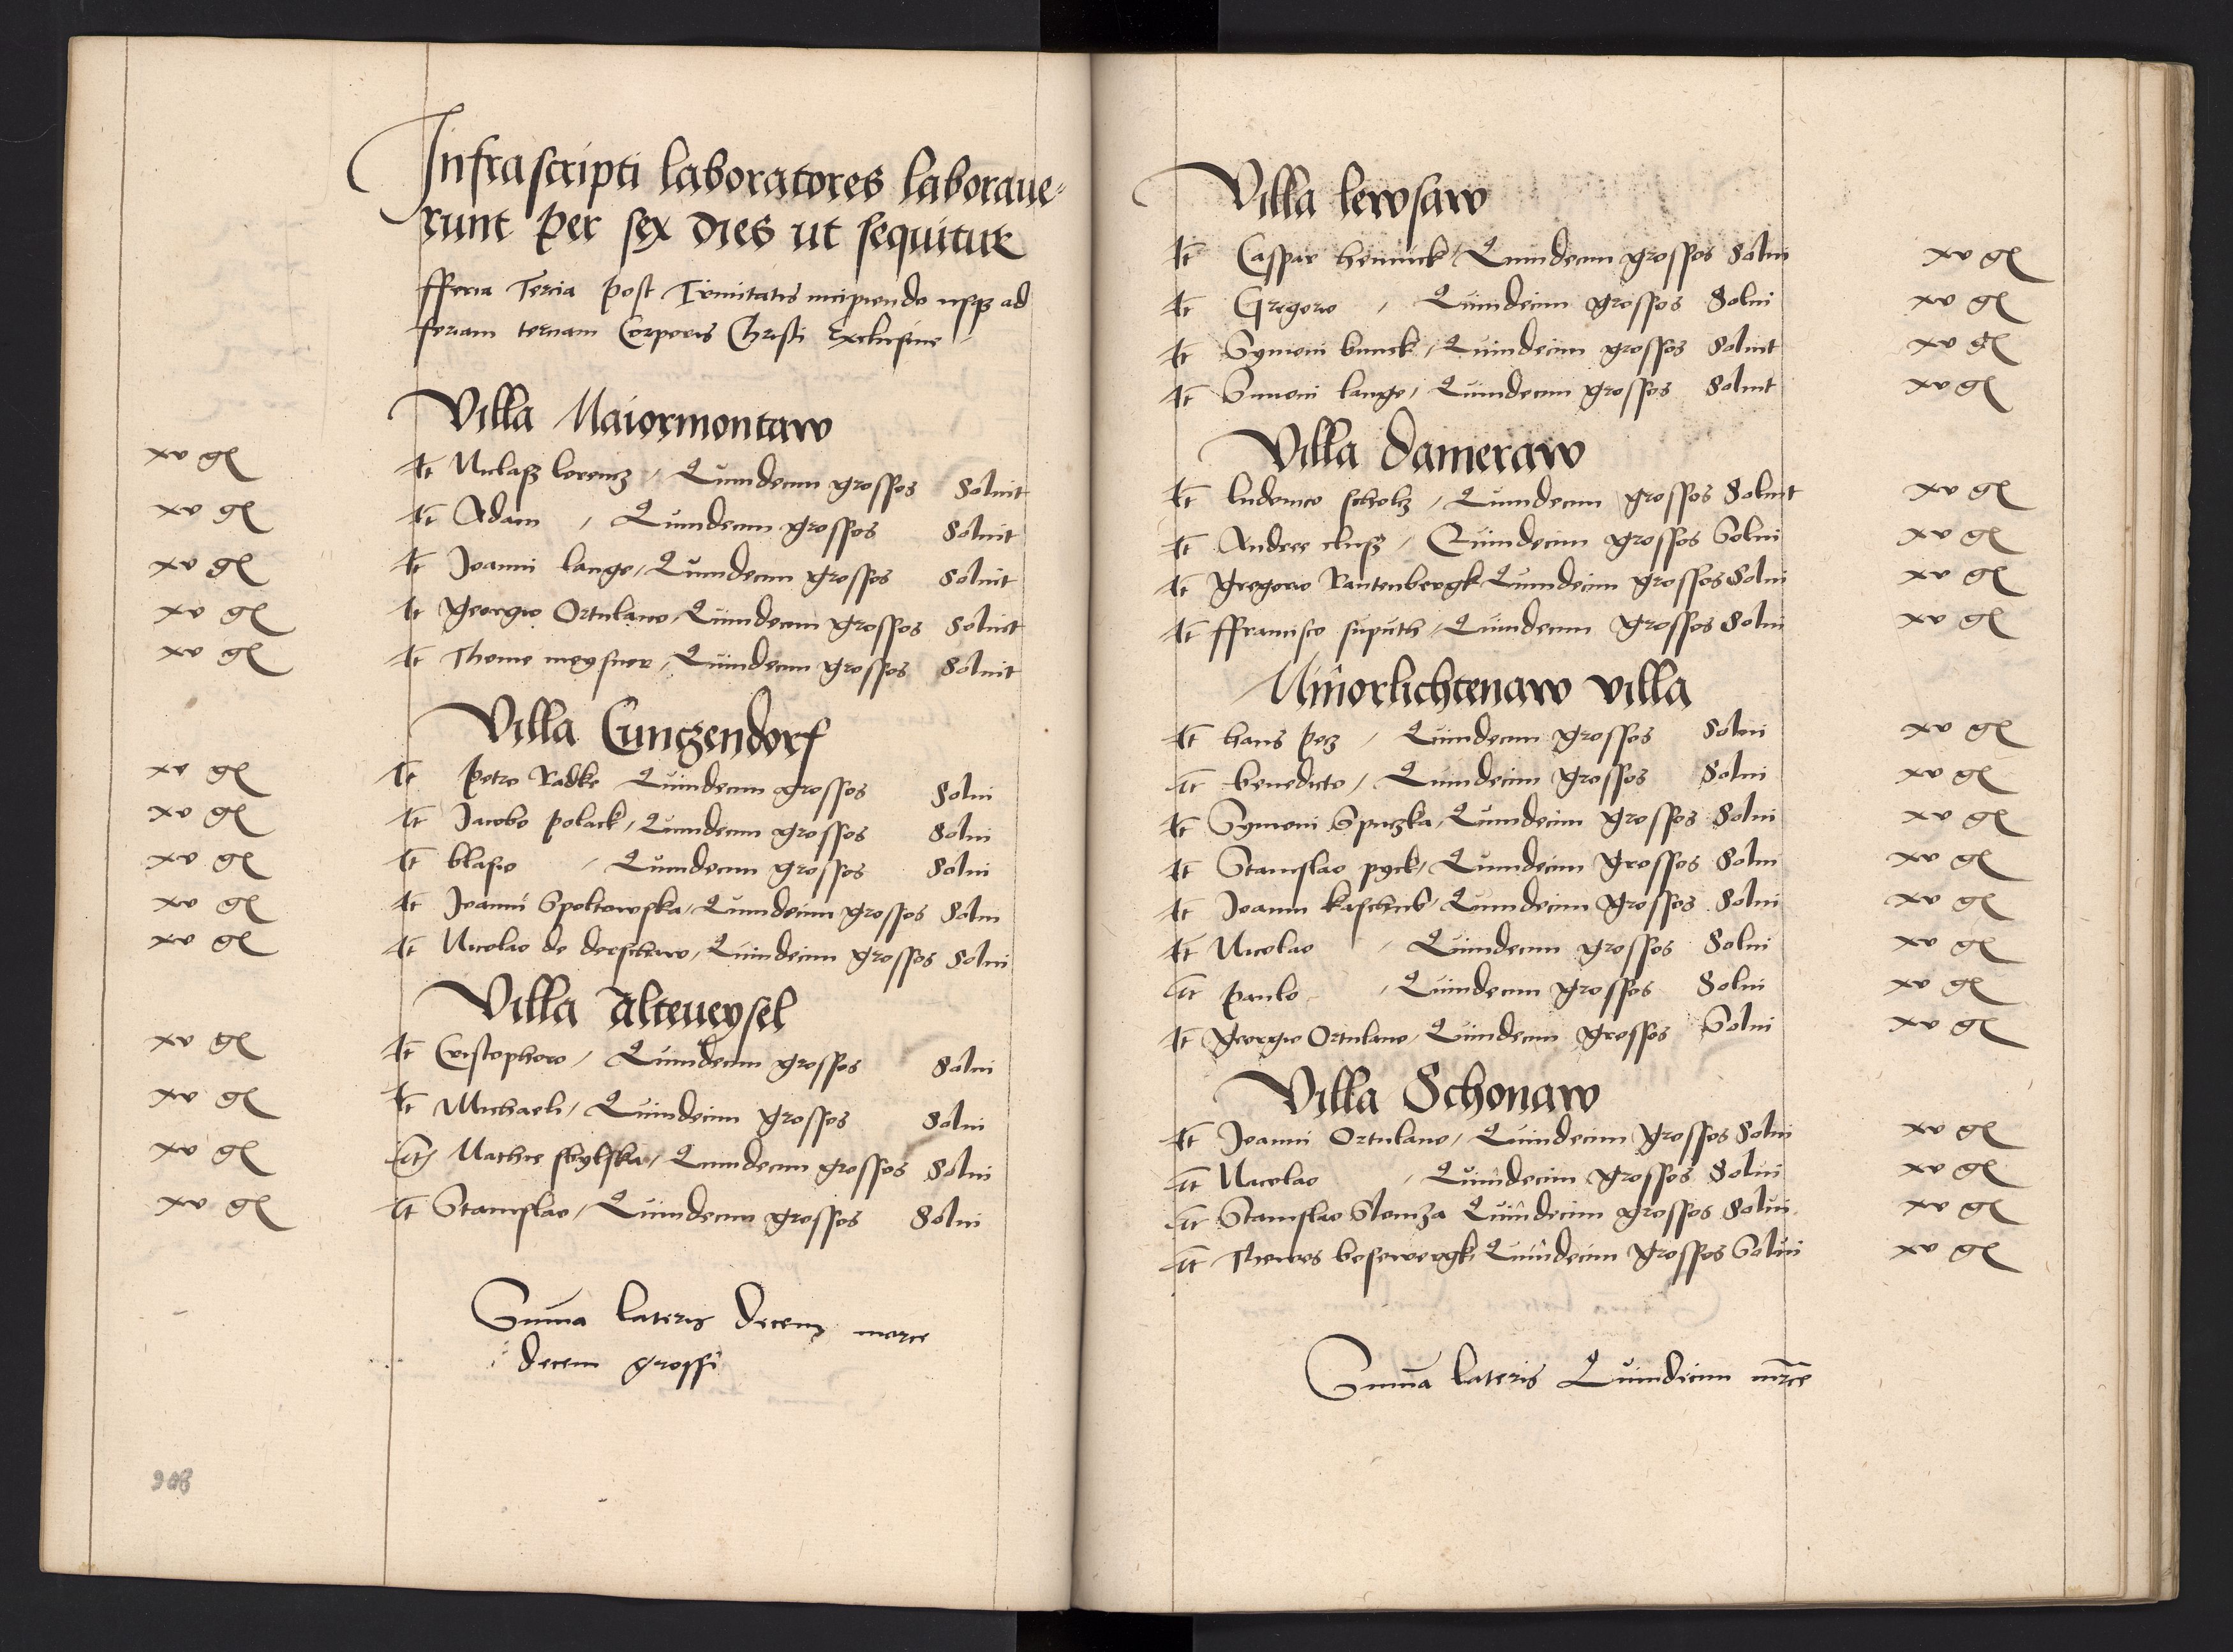 Infrascripti laboratores laboraue-
runt per sex dies ut sequitur
fferia Tercia post Trinitatis incipiendo usqz ad
feriam terciam Corporis Christi Exclusiue
Villa Maiormontaw
xv gl It Niclasz lorencz / Quindecim grossos Soluit
xv gl It Adam / Quindecim grossos Soluit
xv gl It Joanni lange / Quindecim grossos Soluit
xv gl It Georgio Ortulano / Quindecim grossos Soluit
xv gl It Thome meysner / Quindecim grossos Soluit
Villa Cunczendorf
xv gl It Petro Radke Quindecim grossos Solui
xv gl It Jacobo polack / Quindecim grossos Solui
xv gl It blasio / Quindecim grossos Solui
xv gl It Joanni Spoltowska / Quindecim grossos Solui
xv gl It Nicolao de derschaw / Quindecim grossos Solui
Villa Alteueysel
xv gl It Cristophoro / Quindecim grossos Solui
xv gl It Michaeli / Quindecim grossos Solui
xv gl It Mathie sbylska / Quindecim grossos Solui
xv gl It Stanislao / Quindecim grossos Solui
Summa lateris decem marce
decem grossi
308
Villa lewsaw
It Caspar hennick / Quindecim grossos Solui xv gl
It Gregorio / Quindecim grossos Solui xv gl
It Symoni bunck / Quindecim grossos Soluit xv gl
It Simoni lange / Quindecim grossos Soluit xv gl
Villa dameraw
It ludouico scholcz / Quindecim grossos Soluit xv gl
It Andree clusz / Quindecim grossos Solui xv gl
It gregorio Rautenbergk Quindecim grossos Solui xv gl
It ffrancisco suputh / Quindecim grossos Solui xv gl
Minorlichtenaw villa
It hans pecz / Quindecim grossos Solui xv gl
It benedicto / Quindecim grossos Solui xv gl
It Symoni Spiczka / Quindecim grossos Solui xv gl
It Stanislao pyck / Quindecim grossos Solui xv gl
It Joanni kaschub / Quindecim grossos Solui xv gl
It Nicolao / Quindecim grossos Solui xv gl
It paulo / Quindecim grossos Solui xv gl
It Georgio Ortulano / Quindecim grossos Solui xv gl
Villa Schonaw
It Joanni Ortulano / Quindecim grossos Solui xv gl
It Nicolao / Quindecim grossos Solui xv gl
It Stanislao Slomza Quindecim grossos Solui xv gl
It Thewes besewergk Quindecim grossos Solui xv gl
Summa lateris Quindecim mrce